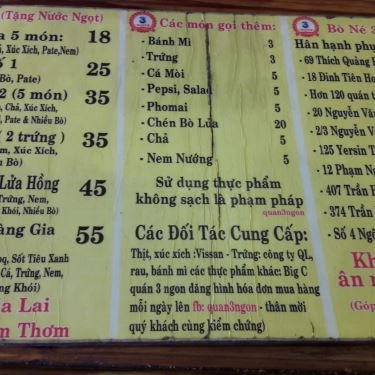 (Tặng Nước Ngọt)
a 5 món: 18
, Xúc Xích, Pate,Nem)
ố 1 25
Bò, Pate)
2 (5 món) 35
, Chả, Xúc Xích,
, Pate & Nhiều Bò)
( 2 trứng ) 35
m, Xúc Xích,
Nhiều Bò)
Lửa Hồng 45
Trứng, Nem,
Khói, Nhiều Bò)
àng Gia 55
oq, Sốt Tiêu Xanh
Cá, Trứng, Nem,
ng Khói)
a Lai
m Thơm
3
Các món gọi thêm:
- Bánh Mì 3
- Trứng 5
- Cá Mòi 5
- Pepsi, Salad 5
- Phomai 5
- Chén Bò Lửa 20
- Chả 5
- Nem Nướng 5
Sử dụng thực phẩm
không sạch là phạm pháp
quan3ngon
Các Đối Tác Cung Cấp:
Thịt, xúc xích :Vissan - Trứng: công ty QL,
rau, bánh mì các thực phẩm khác: Big C
quán 3 ngon dăng hình hóa đơn mua hàng
mỗi ngày lên fb: quan3ngon - thân mời
quý khách cùng kiểm chứng)
3
Bò Né 3
Hân hạnh phụ
- 69 Thích Quảng
- 18 Đinh Tiên Ho
- Hơn 120 quán t
- 20 Nguyễn Vă
- 2/3 Nguyễn
- 125 Yersin T
- 12 Phạm Ng
- 407 Trần
- 374 Trần
- Số 4 Ngô
Kh
ân n
(Góp